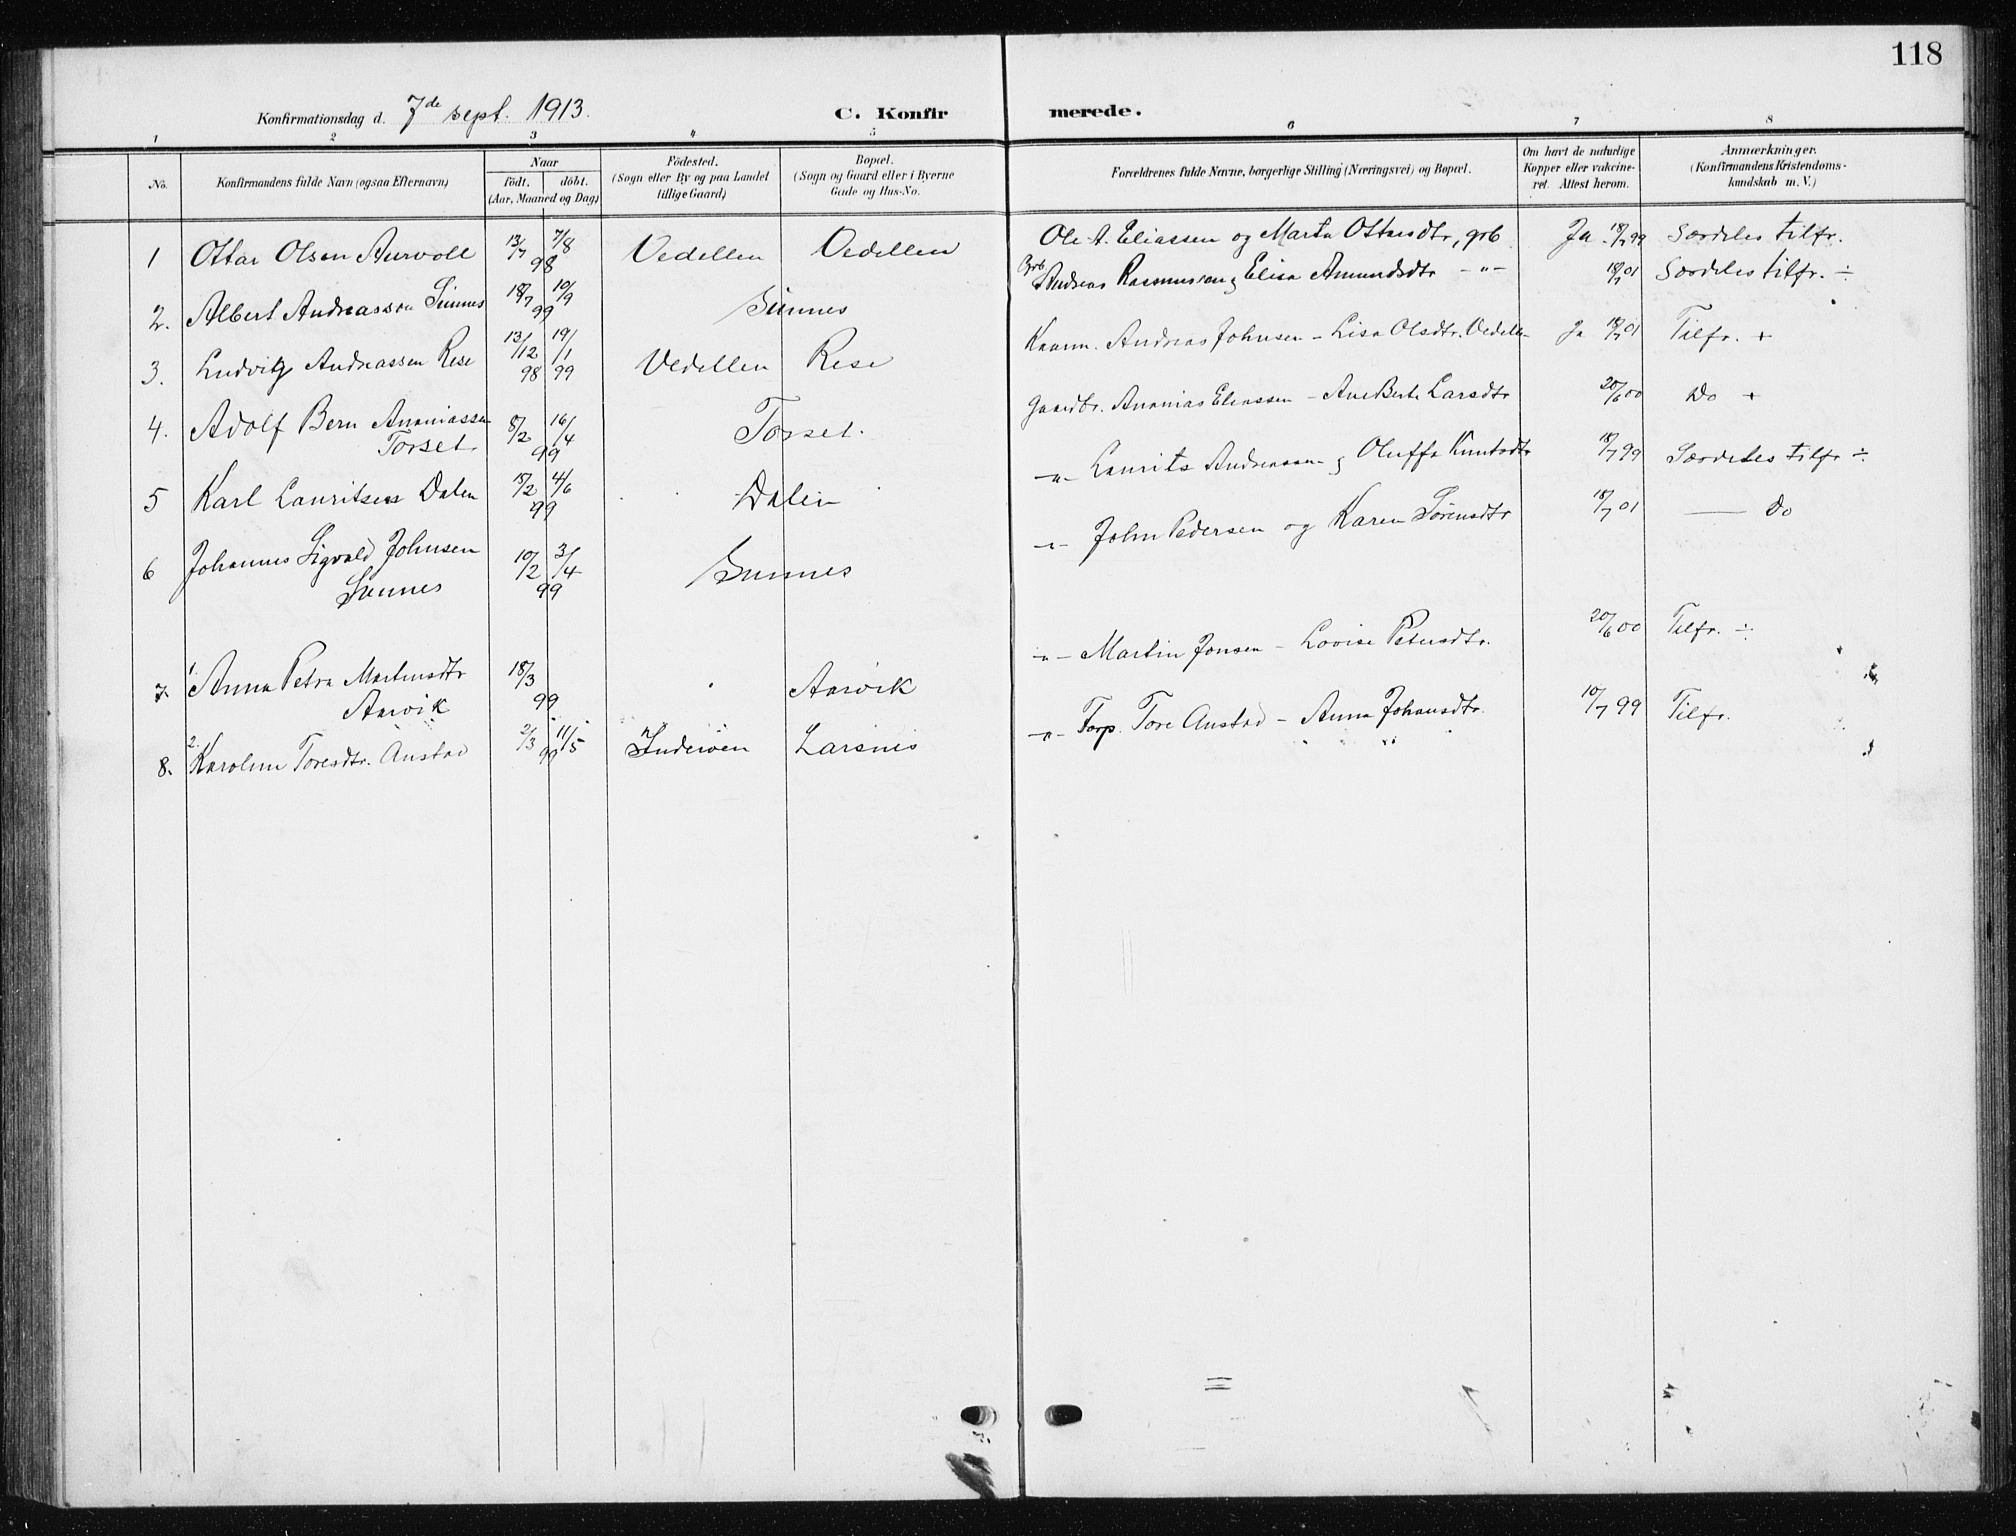 118
Konfirmationsdag d. 7de sept. 1913.
C. Konfirmerede.
1 2 3 4 5 6 7 8
No.
Konfirmandens fulde Navn (ogsaa Efternavn)
Naar
födt. döbt.
(Aar, Maaned og Dag)
Födested.
(Sogn eller By og paa Landet
tillige Gaard)
Bopæl.
(Sogn og Gaard eller i Byerne
Gade og Hus-No.
Forældrenes fulde Navne, borgerlige Stilling (Næringsvei) og Bopæl.
Om havt de naturlige
Kopper eller vakcine-
ret. Attest herom.
Anmærkninger.
(Konfirmandens Kristendoms-
kundskab m. V.)
1 Ottar Olsen Aurvoll 13/7 7/8 98 Vedellen Vedellen Ole A. Eliassen og Marta Ottarsdtr, grb Ja 18/7 99 Særdeles tilfr.
2. Albert Andreassen Sunnes 18/7 10/9 99 Sunnes Grb Andreas Rasmussen og Elisa Amundsdtr -"- 18/7 01 Særdeles tilfr. ÷
3. Ludvig Andreassen Rese 13/12 98 19/1 99 Vedellen Rese Kaarm. Andreas Johnsen - Lisa Olsdtr. Vedelle Ja 18/7 01 Tilfr. +
4. Adolf Bern Ananiassen
Torset. 8/2 16/4 99 Torset. Gaardbr. Ananias Eliassen - Ane Berte Larsdtr 20/6 00 Do +
5 Karl Lauritsen Dalen 15/2 4/6 99 Dalen -"- Laurits Andreassen og Oluffa Knutsdtr 18/7 99 Særdeles tilfr ÷
6 Johannes Sigvald Johnsen
Sunnes 10/2 3/4 99 Sunnes -"- John Pedersen og Karen Sørensdtr 18/7 01 — Do
7. 1. Anna Petra Martinsdtr
Aarvik 18/3 99 Aarvik -"- Martin Jonsen - Lovise Petersdtr. 20/6 00 Tilfr. ÷
8. 2. Karoline Toresdtr. Austad 2/3 11/5 99 Inderöen Larsnes -"- Forp. Tore Austad - Anna Johansdtr. 10/7 99 Tilfr.